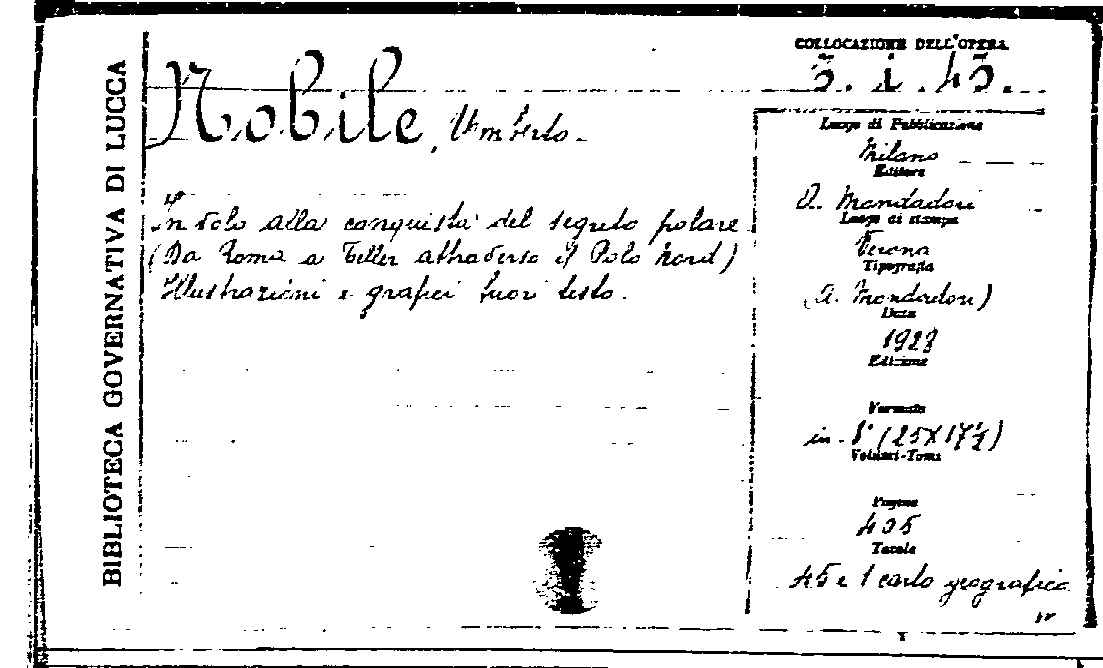 BIBLIOTECA GOVERNATIVA DI LUCCA
COLLOCAZIONE DELL'OPERA
3. i. 45.
Nobile, Umberto.
In volo alla conquista del segreto polare
(Da Roma a Teller attraverso il Polo Nord)
Illustrazioni e grafici fuori testo.
Luogo di Pubblicazione
Milano
Editore
A. Mondadori
Luogo di stampa
Verona
Tipografia
(A. Mondadori)
Data
Edizione
Formato
in-8° (25X17½)
Volumi-Tomi
Pagine
405
Tavole
45 e 1 carta geografica